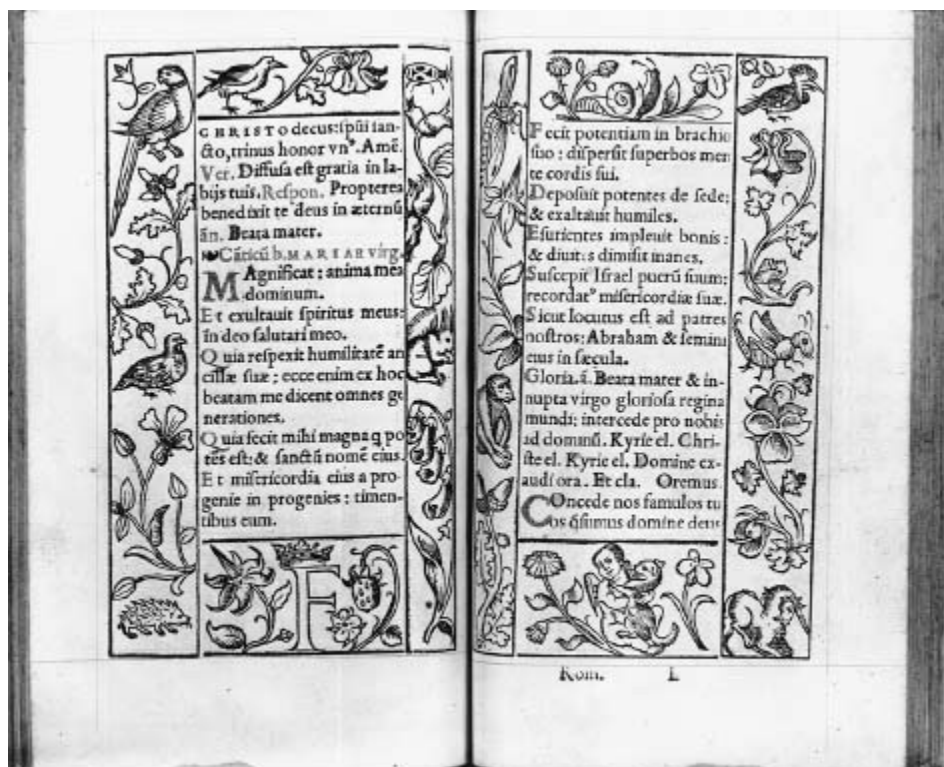 CHRISTO decus: spūi san-
cto, trinus honor vnꝰ. Amē.
Ver. Diffusa est gratia in la-
bijs tuis. Respon. Propterea
benedixit te deus in æternū
ān. Beata mater.
Cāticū b. MARIAE virg.
MAgnificat: anima mea
dominum.
Et exultauit spiritus meus:
in deo salutari meo.
Quia respexit humilitatē an
cillæ suæ; ecce enim ex hoc
beatam me dicent omnes ge
nerationes.
Quia fecit mihi magna q po
tēs est: & sanctū nomē eius.
Et misericordia eius a pro-
genie in progenies: timen-
tibus eum.
F
Fecit potentiam in brachio
suo: dispersit superbos men
te cordis sui.
Deposuit potentes de sede:
& exaltauit humiles.
Esurientes impleuit bonis:
& diuites dimisit inanes.
Suscepit Israel puerū suum:
recordatꝰ misericordiæ suæ.
Sicut locutus est ad patres
nostros: Abraham & semini
eius in sæcula.
Gloria. ā. Beata mater & in-
nupta virgo gloriosa regina
mundi: intercede pro nobis
ad dominū. Kyrie el. Chri-
ste el. Kyrie el. Domine ex-
audi ora. Et cla. Oremus.
COncede nos famulos tu
os q̄sumus domine deus
Rom. L